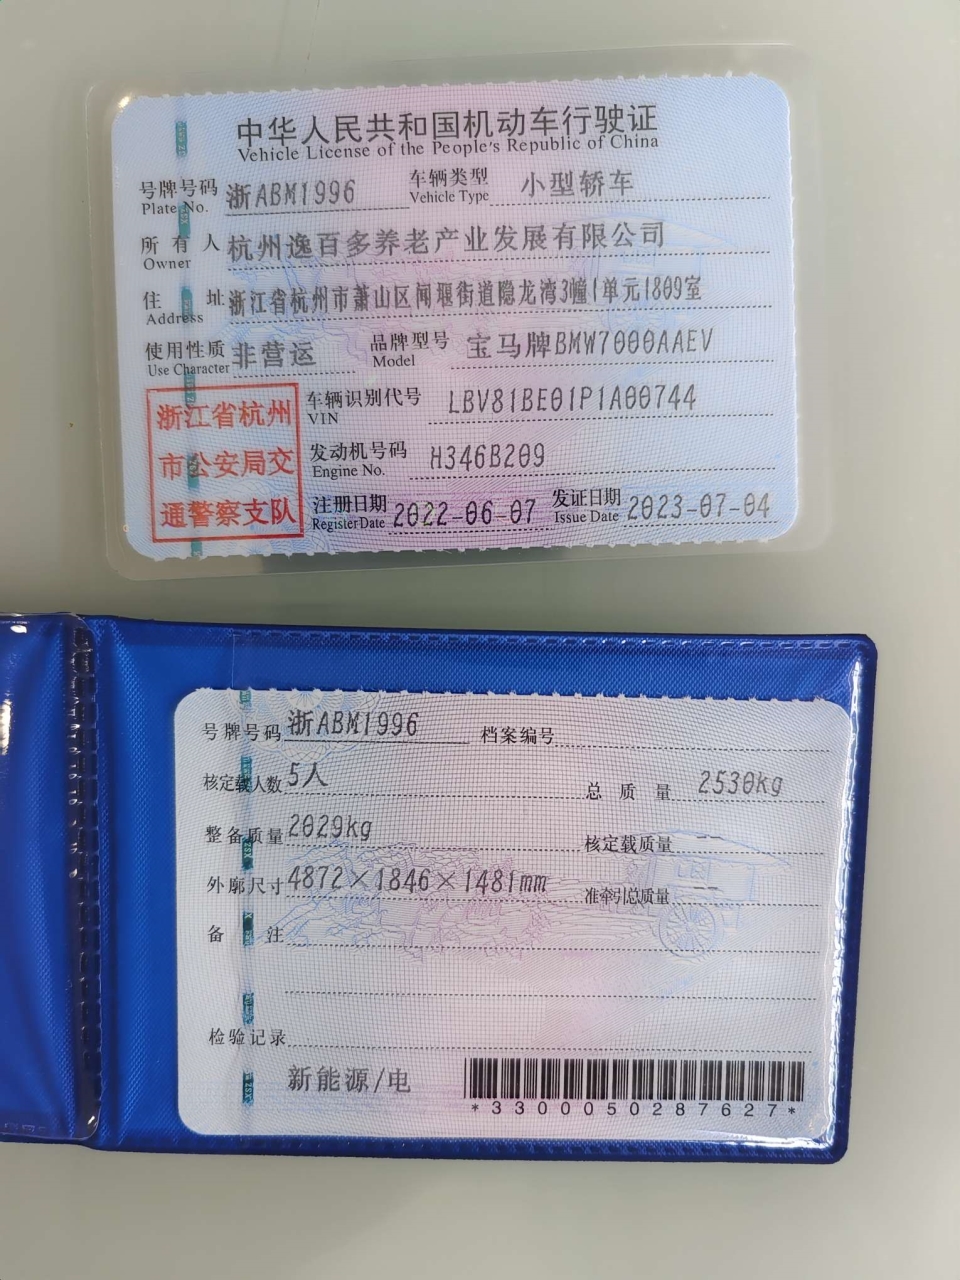 中华人民共和国机动车行驶证
Vehicle License of the People's Republic of China
号牌号码 浙ABM1996 车辆类型 小型轿车
Plate No. Vehicle Type
所有人 杭州逸百多养老产业发展有限公司
Owner
住址 浙江省杭州市萧山区闻堰街道隐龙湾3幢1单元1809室
Address
使用性质 非营运 品牌型号 宝马牌BMW7000AAEV
Use Character Model
浙江省杭州
市公安局交
通警察支队
车辆识别代号 LBV81BE01P1A00744
VIN
发动机号码 H346B209
Engine No.
注册日期 2022-06-07 发证日期 2023-07-04
Register Date Issue Date
号牌号码 浙ABM1996 档案编号
核定载人数 5人 总质量 2530kg
整备质量 2029kg 核定载质量 --
外廓尺寸 4872×1846×1481mm 准牵引总质量 --
备注
检验记录
新能源/电
*3300050287627*